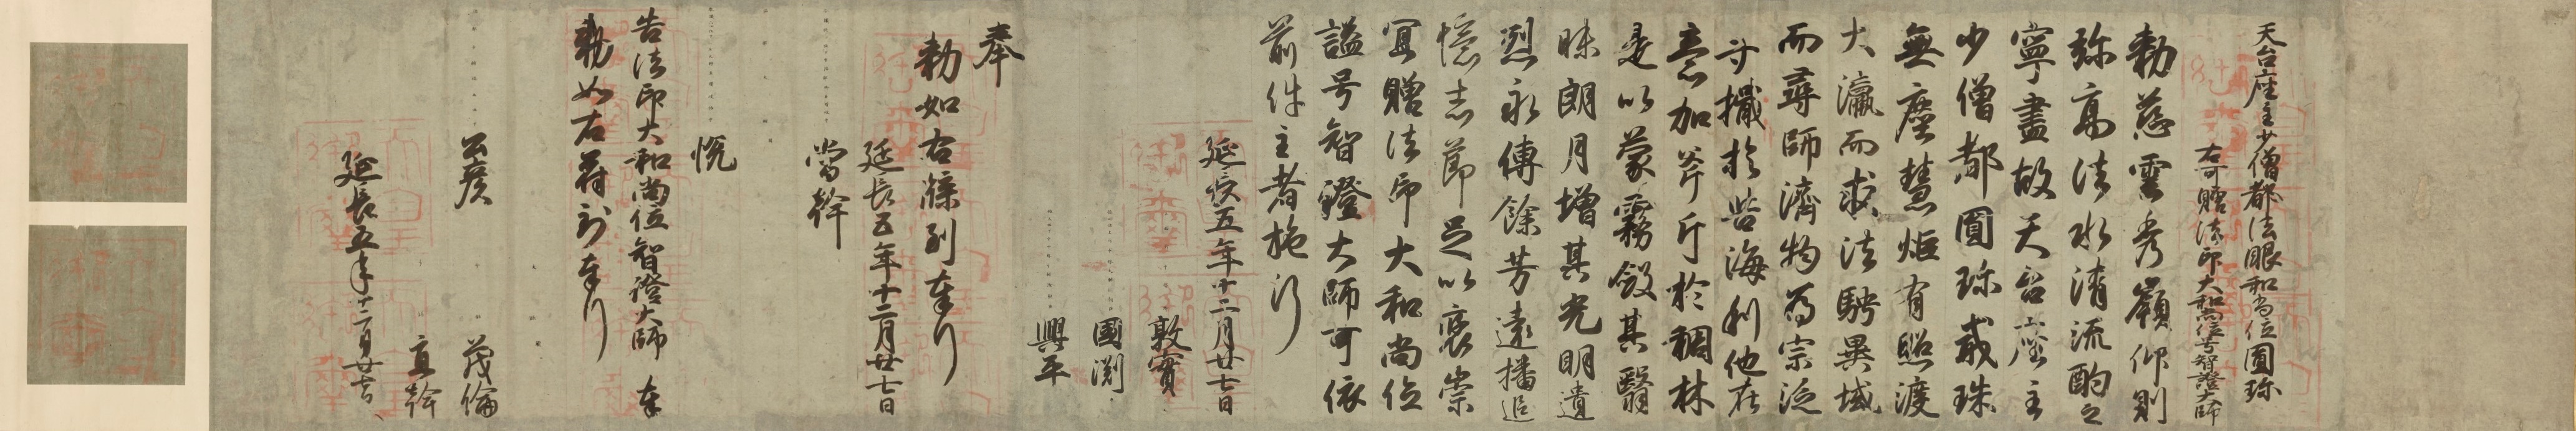 天台座主少僧都法眼和尚位圓珎
右可贈法印大和尚位号智證大師
勅慈雲秀嶺仰則
弥高法水清流酌之
寧盡故天台座主
少僧都圓珎戒珠
無塵慧炬有照渡
大瀛而求法騁異域
而尋師濟物為宗泛
舟檝於苦海利他在
意加斧斤於稠林
是以蒙霧斂其翳
昧朗月增其光明遺
烈永傳餘芳遠播追
憶志節足以褒崇
冝贈法印大和尚位
謚号智證大師可依
前件主者施行
延長五年十二月廿七日
敦實
國淵
興平
奉
勅如右牒到奉行
延長五年十二月廿七日
當幹
恱
告法印大和尚位智證大師 奉
勅如右符到奉行
公彦 茂倫
直幹
延長五年十二月廿七日